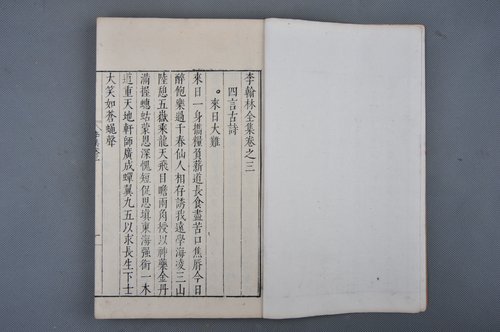 李翰林全集卷之三
四言古詩
來日大難
來日一身攜糧負薪道長食盡苦口焦脣今日
醉飽樂過千春仙人相存誘我遠學海凌三山
陸憩五嶽乘龍天飛目瞻兩角授以神藥金丹
滿握蟪蛄蒙恩深愧短促思填東海強銜一木
道重天地軒師廣成蟬翼九五以求長生下士
大笑如蒼蠅聲